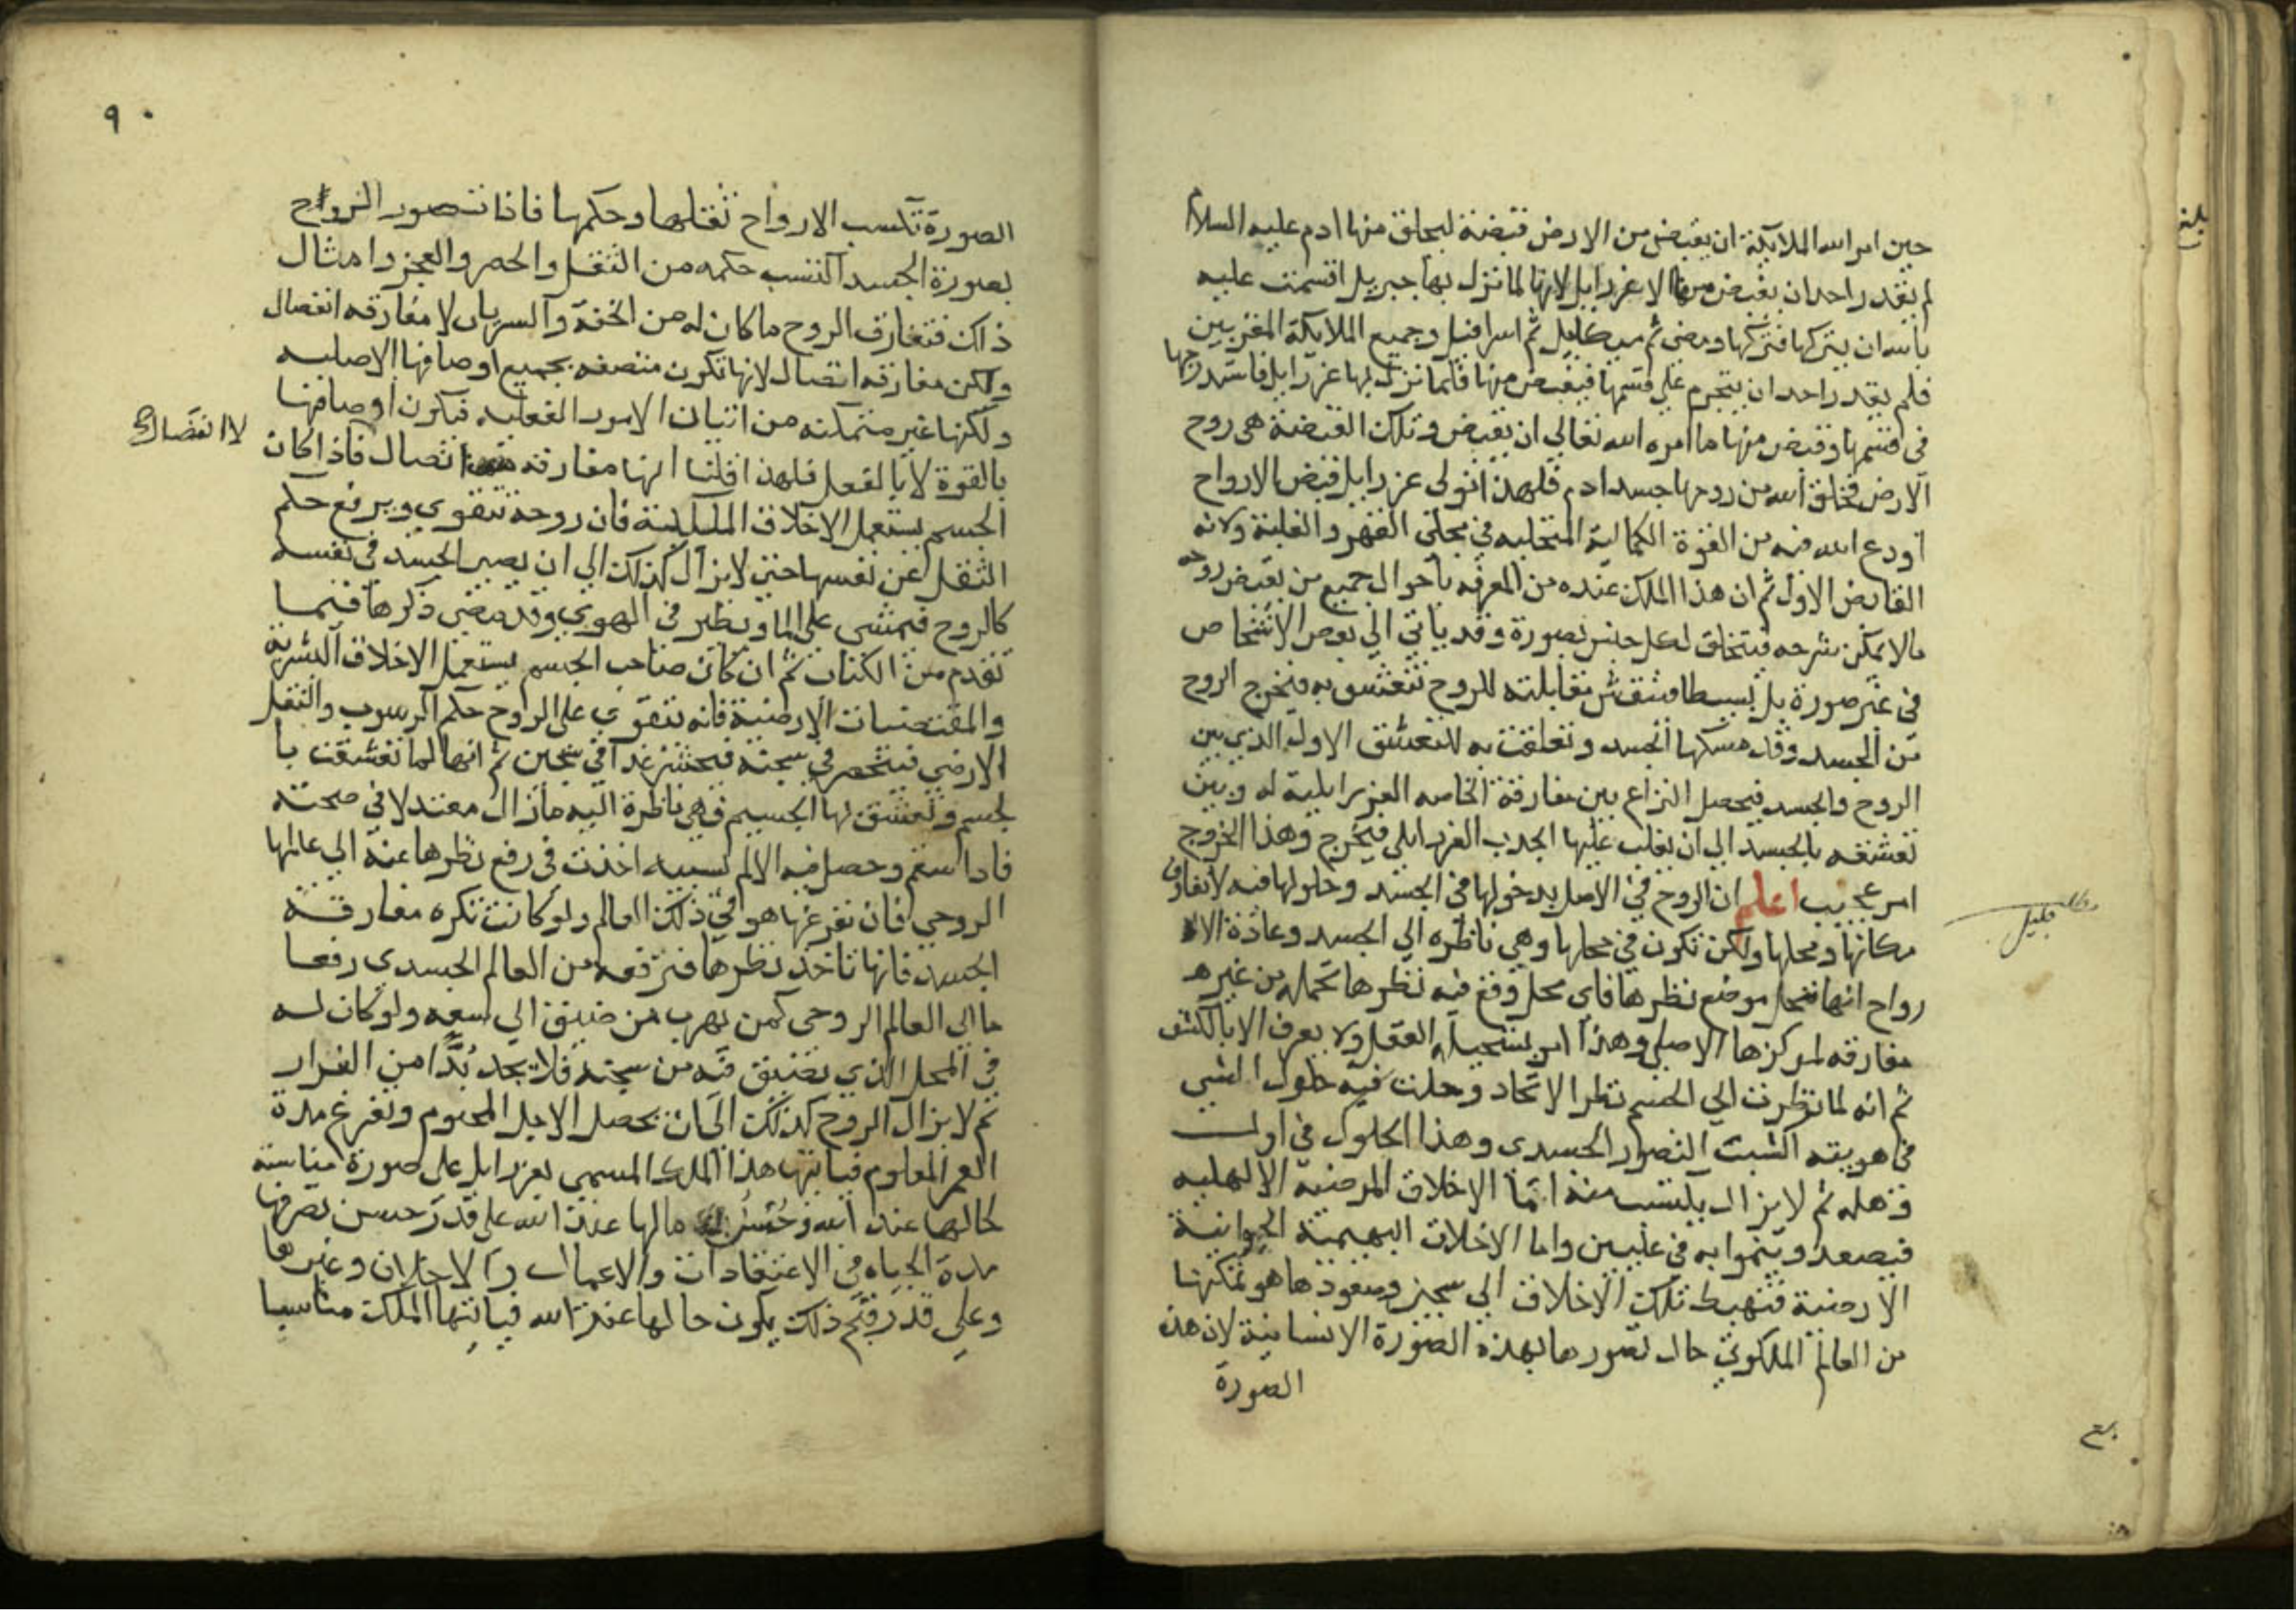 حين امر الله الملايكة ان يقبض من الارض قبضة ليخلق منها ادم عليه السلام
لم يقدر احد ان يقبض منها الا عزرايل لانها لما نزل بها جبريل اقسمت عليه
بالله ان يتركها فتركها ومضى ثم ميكاييل ثم اسرافيل وجميع الملايكة المقربين
فلم يقدر احد ان يتجرم على قسمها فيقبض منها فلما نزل بها عزرايل فاستدرجها
في قسمها وقبض منها ما امره الله تعالى ان يقبض وتلك القبضة هي روح
الارض فخلق الله من روحها جسد ادم فلهذا تولى عزرايل قبض الارواح
اودع الله فيه من القوة الكمالية المتجلية في مجلى القهر والغلبة ولانه
القابض الاول ثم ان هذا الملك عنده من المعرفه باحوال جميع من يقبض روحه
مالا يمكن شرحه فيتخلق لكل جنس بصورة وقد ياتي الى بعض الاشخاص
في غير صورة بل بسيطا فينقش مقابلته للروح تتعشق به فيخرج الروح
من الجسد وقد مسكها الجسد وتعلقت به للتعشق الاول الذي بين
الروح والجسد فيحصل النزاع بين مفارقة الخاصه العزرايلية له وبين
تعشقه بالجسد الى ان يغلب عليها الجذب العزرايلي فيخرج وهذا الخروج
امر عجيب اعلم ان الروح في الاصل بدخولها في الجسد وحلولها فيه لا تفارق
مكانها ومحلها ولكن تكون في محلها وهي ناظره الى الجسد وعادة الا
رواح انها تحل موضع نظرها فاي محل وقع فيه نظرها تحله من غير
مفارقه لمركزها الاصلي وهذا امر يستحيله العقل ولا يعرف الا بالكشف
جليل
ثم انه لما نظرت الى الجسم نظر الاتحاد وحلت فيه حلول الشي
في هويته اكتسبت التصور الجسدي وهذا الحلول في اول
وهله ثم لا يزال يكتسب منه اما الاخلاق المرضية الالهليه
فيصعد وينموا به في عليين واما الاخلاق البهيمية الحيوانية
الارضية فتهبط تلك الاخلاق الى سجين وصعودها هو تمكنها
من العالم الملكوتي حال تصورها بهذه الصورة الانسانية لان هذه
الصورة
٩٠
الصورة تكسب الارواح ثقلها وحكمها فاذا تصور الروح
بصورة الجسد اكتسب حكمه من الثقل والحصر والعجز وامثال
ذلك فتفارق الروح ما كان له من الخفة والسريان لا مفارقه انفصال
ولكن مفارقه اتصال لانها تكون متصفه بجميع اوصافها الاصليه
ولكنها غير متمكنه من اتيان الامور الفعليه فتكون اوصافها
بالقوة لا بالفعل فلهذا قلنا انها مفارقه اتصال فاذا كان
لا انفصال
الجسم يستعمل الاخلاق الملكية فان روحه تتقوى ويرفع حكم
الثقل عن نفسها حتى لا يزال كذلك الى ان يصير الجسد في نفسه
كالروح فيمشى على الما ويطير في الهوى وقد مضى ذكرها فيما
تقدم من الكتاب ثم ان كان صاحب الجسم يستعمل الاخلاق البشرية
والمقتضيات الارضية فانه تتقوى على الروح حكم الرسوب والثقل
الارضي فينحصر في سجنه فيحشر غدا في سجين ثم انها لما تعشقت با
لجسم وتعشق لها الجسم فهي ناظرة اليه مازال معتدلا في صحته
فاذا سقم وحصل فيه الالم بسببه اخذت في رفع نظرها عنه الى عالمها
الروحي فان تفرغها هو في ذلك العالم ولو كانت تكره مفارقة
الجسد فانها تاخذ نظرها فترفعه من العالم الجسدي رفعا
ما الى العالم الروحي كمن يهرب من ضيق الى سعه ولو كان له
في المحل الذي يضيق فيه من سجنه فلا يجد بُدًّا من الفرار
ثم لا يزال الروح كذلك الى ان يحصل الاجل المحتوم وتفرغ مدة
العمر المعلوم فياتيها هذا الملك المسمى بعزرايل على صورة مناسبة
لحالها عند الله وحُسْنُ مالها عند الله على قدر حسن تصرفها
مدة الحياه في الاعتقادات والاعمال والاخلاق وغيرها
وعلى قدر قبح ذلك يكون حالها عند الله فياتيها الملك مناسبا